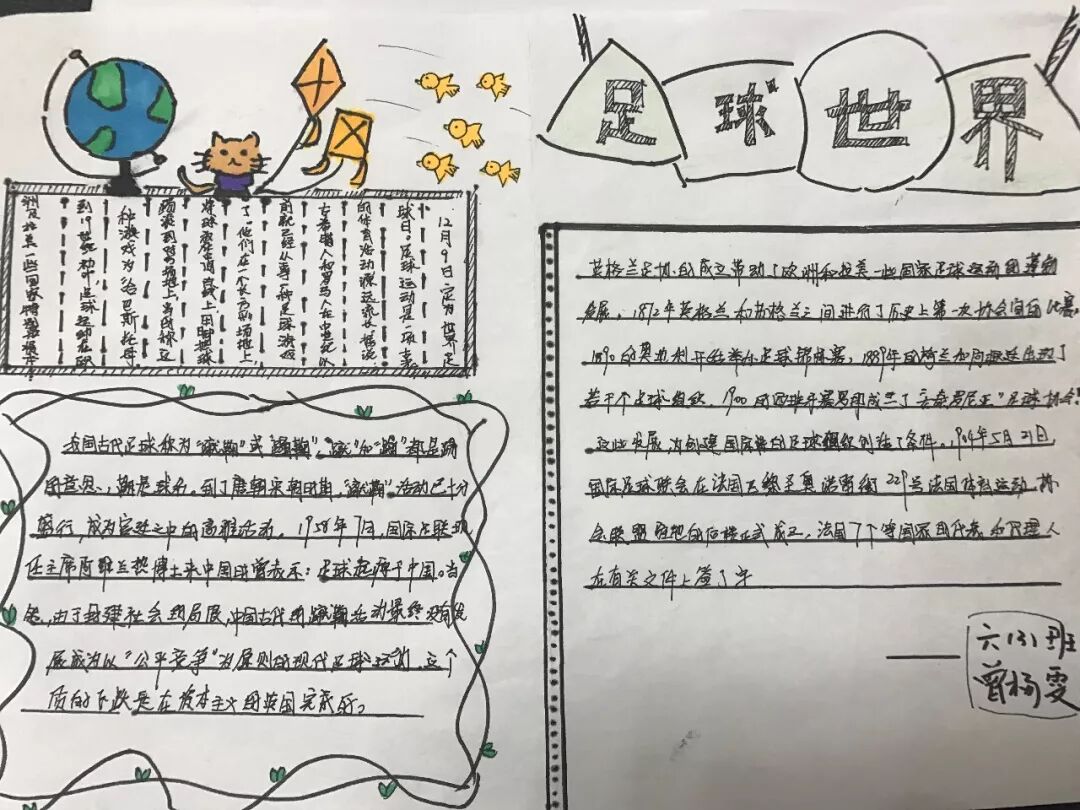 足球世界
12月9日定为世界足
球日,足球运动是一项古老
的体育活动源远流长。据说
古希腊人和罗马人在中世纪以
前就已经从事一种足球游戏
了。他们在一个长方形场地上
将球放在的线上,用脚把球
踢滚到对方场地上,当时称这
种游戏为"哈巴斯托姆
到19世纪初叶足球运动在欧
洲及拉美一些国家
我国古代足球称为"蹴鞠"或"蹋鞠","蹴"和"蹋"都是踢
的意思,鞠是球名。到了唐朝宋朝时期,"蹴鞠"活动已十分
盛行,成为宫廷之中的高雅活动。1958年7月,国际足联现
任主席阿维兰热博士来中国时曾表示:足球起源于中国。当
然,由于封建社会的局限,中国古代的蹴鞠活动最终没有发
展成为以"公平竞争"为原则的现代足球运动,这个
质的飞跃是在资本主义的英国完成的。
英格兰足协的成立带动了欧洲和拉美一些国家足球运动的蓬勃
发展,1872年英格兰和苏格兰之间进行了历史上第一次协会间的比赛,
1890的奥地利开始举办足球锦标赛,1889年的荷兰和阿根廷出现了
若干个足球组织,1900的西班牙
这些发展,为创建国际性的足球组织创造了条件。1904年5月21日,
国际足球联会在法国巴黎圣奥诺雷街229号法国体育运动协
会联盟驻地的后楼正式成立,法国7个等国家的代表和代理人
在有关文件上签了字
六(3)班
曾杨雯